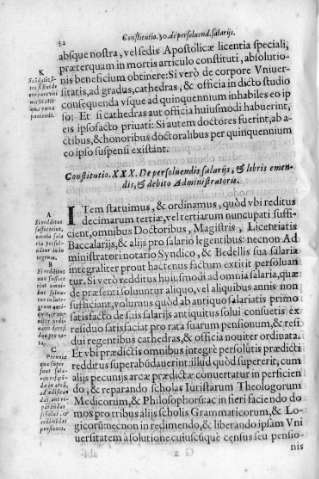 52
Constitutio. 30. de persoluend. salarijs.
absque nostra, vel sedis Apostolicæ licentia speciali,
præterquam in mortis articulo constituti, absolutio-
nis beneficium obtinere: Si verò de corpore Vniuer-
sitatis, ad gradus, cathedras, & officia in dicto studio
consequenda vsque ad quinquennium inhabiles eo ip
so: Et si cathedras aut officia huiusmodi habuerint,
eis ipso facto priuati: Si autem doctores fuerint, ab a-
ctibus, & honoribus doctoralibus per quinquennium
eo ipso suspensi existant.
Constitutio. XXX. De persoluendis salarijs, & libris emen-
dis, & debito Administratoris.
A
B
C
ITem statuimus, & ordinamus, quòd vbi reditus
decimarum tertiæ, vel tertiarum nuncupati suffi-
cient, omnibus Doctoribus, Magistris, Licentiatis
Baccalarijs, & alijs pro salario legentibus: necnon Ad
ministratori notario Syndico, & Bedellis sua salaria
integraliter prout hactenus fictum extitit persoluan
tur. Si verò reditus huiusmodi ad omnia salaria, quæ
de præsenti soluuntur aliquo, vel aliquibus annis non
sufficiant, volumus quòd ab antiquo salariatis primo
satisfacto de suis salarijs antiquitus solui consuetis ex
residuo satisfaciat pro rata suarum pensionum, & resi
dui regentibus cathedras, & officia nouiter ordinata.
Et vbi prædictis omnibus integrè persolutis prædicti
redditus superabúdauerint illud quòd supererit, cum
alijs pecunijs arcæ prædictæ conuertatur in perficien
do, & reparando scholas Iuristarum Theologorum
Medicorum, & Philosophorū ac in fieri faciendo do
mos pro tribus alijs scholis Grammaticorum, & Lo-
gicorū necnon in redimendo, & liberando ipsam Vni
uersitatem à solutione cuiuscūque census seu pensio-
nis